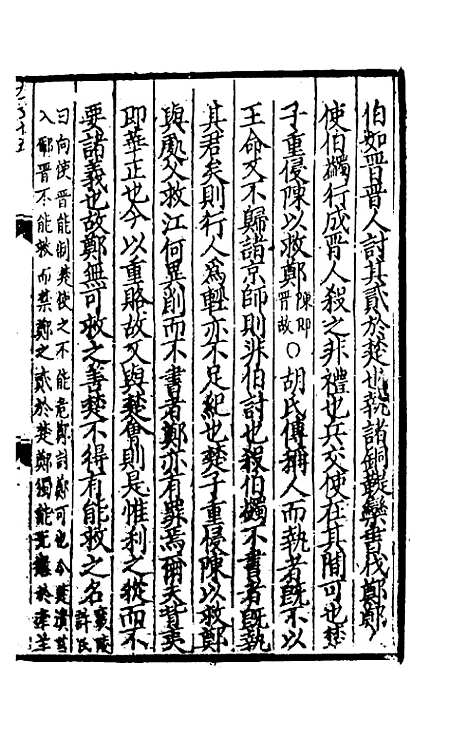 伯如晉晉人討其貳於楚也執諸銅鞮欒書伐鄭鄭
使伯蠲行成晉人殺之非禮也兵交使在其間可也楚
子重侵陳以救鄭陳即晉故○胡氏傳稱人而執者既不以
王命又不歸諸京師則非伯討也殺伯蠲不書者既執
其君矣則行人為輕亦不足紀也楚子重侵陳以救鄭
與處父救江何異削而不書者鄭亦有罪焉爾夫背夷
即華正也今以重賂故又與楚會則是惟利之從而不
要諸義也故鄭無可救之善楚不得有能救之名襄陵許氏
曰向使晉能制楚使之不能竞鄭討鄭可也今楚潰莒
入鄆晉不能救而禁鄭之貳於楚鄭獨能無